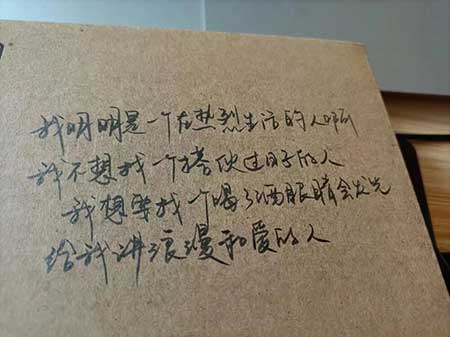 我明明是一个在热烈生活的人啊
我不想找一个搭伙过日子的人
我想要找个喝了酒眼睛会发光
给我讲浪漫和爱的人